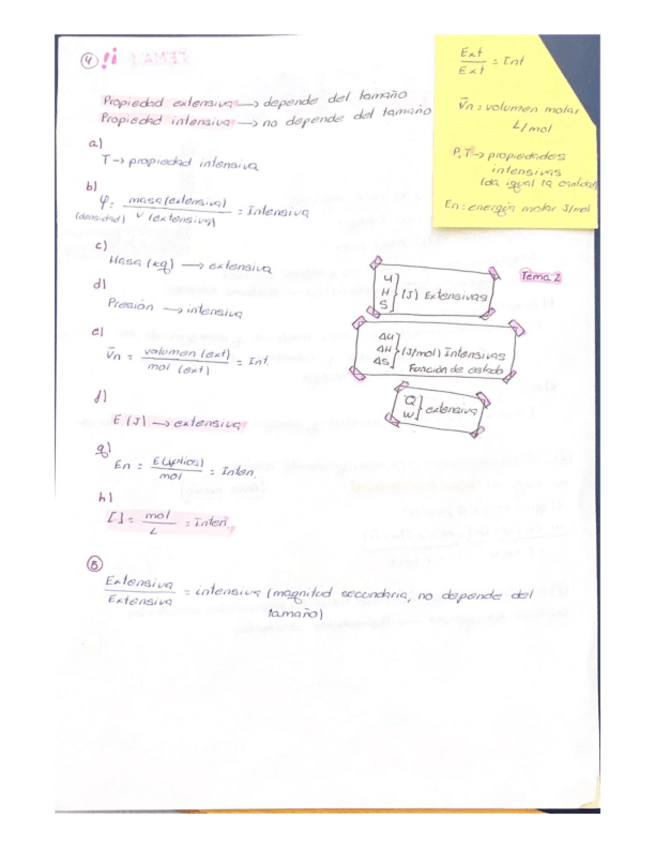 4 !¡
Propiedad extensiva → depende del tamaño
Propiedad intensiva → no depende del tamaño
a)
T → propiedad intensiva
b)
φ = masa (extensiva) / V (extensiva) = Intensiva
(densidad)
c)
Masa (kg) → extensiva
d)
Presión → intensiva
e)
V̄n = volumen (ext) / mol (ext) = Int.
f)
E (J) → extensiva
g)
En = E / mol = Inten.
h)
[ ] = mol / L = Inten.
5
Extensiva / Extensiva = intensiva (magnitud secundaria, no depende del
tamaño)
Ext / Ext = Int
V̄n = volumen molar
L/mol
P, T → propiedades
intensivas
(da igual la cantidad)
En = energía molar J/mol
Tema 2
U
H } (J) Extensivas
S
ΔU
ΔH } (J/mol) Intensivas
ΔS Función de estado
Q
W } extensiva